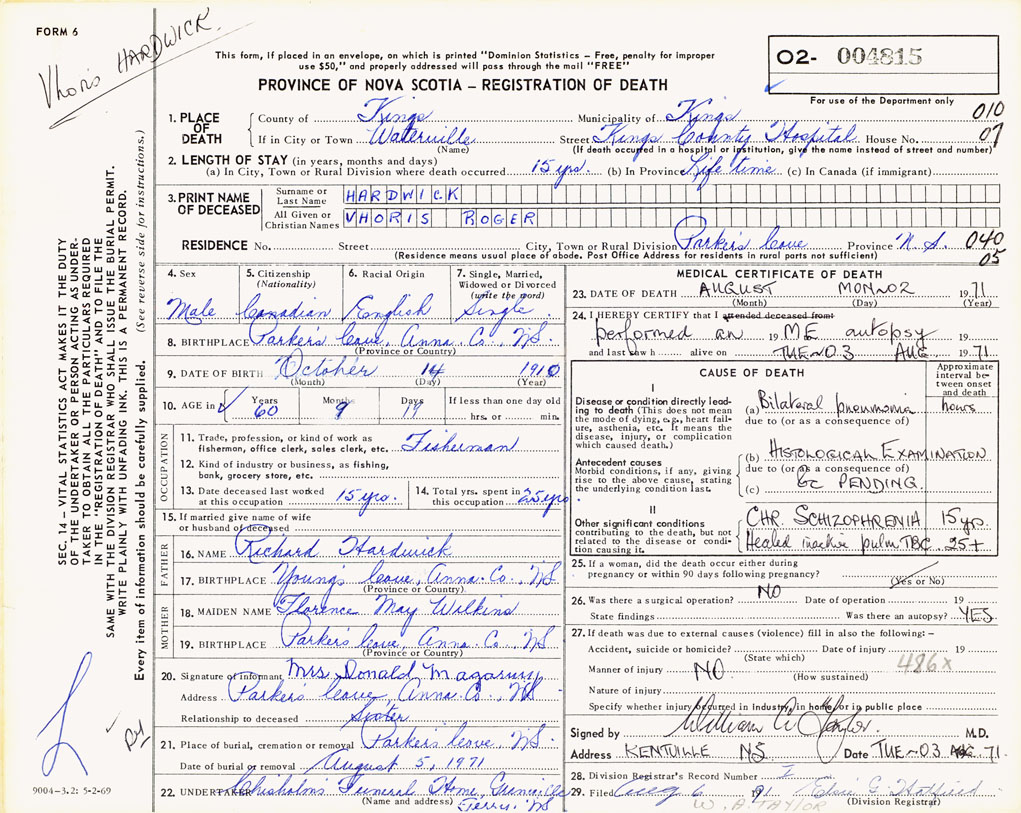 FORM 6
Vhoris HARDWICK.
This form, if placed in an envelope, on which is printed "Dominion Statistics – Free, penalty for improper
use $50," and properly addressed will pass through the mail "FREE"
PROVINCE OF NOVA SCOTIA – REGISTRATION OF DEATH
O2- 004815
For use of the Department only
010
07
1. PLACE OF DEATH
County of Kings Municipality of Kings
If in City or Town Waterville Street Kings County Hospital House No.
(Name) (If death occurred in a hospital or institution, give the name instead of street and number)
2. LENGTH OF STAY (in years, months and days)
(a) In City, Town or Rural Division where death occurred 15 yrs. (b) In Province Life time (c) In Canada (if immigrant)
3. PRINT NAME OF DECEASED
Surname or Last Name HARDWICK
All Given or Christian Names VHORIS ROGER
RESIDENCE No. Street City, Town or Rural Division Parker's Cove Province N.S. 040
(Residence means usual place of abode. Post Office Address for residents in rural parts not sufficient) 05
SEC. 14 – VITAL STATISTICS ACT MAKES IT THE DUTY
OF THE UNDERTAKER OR PERSON ACTING AS UNDER-
TAKER TO OBTAIN ALL THE PARTICULARS REQUIRED
IN THE "REGISTRATION OF DEATH" AND TO FILE THE
SAME WITH THE DIVISION REGISTRAR WHO SHALL ISSUE THE BURIAL PERMIT.
WRITE PLAINLY WITH UNFADING INK. THIS IS A PERMANENT RECORD.
Every item of information should be carefully supplied. (See reverse side for instructions.)
4. Sex 5. Citizenship (Nationality) 6. Racial Origin 7. Single, Married, Widowed or Divorced (write the word)
Male Canadian English Single
8. BIRTHPLACE Parker's Cove, Anna. Co., N.S.
(Province or Country)
9. DATE OF BIRTH October 14 1910
(Month) (Day) (Year)
10. AGE in Years Months Days If less than one day old
60 9 19 hrs. or min.
OCCUPATION
11. Trade, profession, or kind of work as
fisherman, office clerk, sales clerk, etc. Fisherman
12. Kind of industry or business, as fishing,
bank, grocery store, etc.
13. Date deceased last worked at this occupation 15 yrs. 14. Total yrs. spent in this occupation 25 yrs
15. If married give name of wife
or husband of deceased
FATHER
16. NAME Richard Hardwick
17. BIRTHPLACE Young's Cove, Anna. Co., N.S
(Province or Country)
MOTHER
18. MAIDEN NAME Florence May Wilkins
19. BIRTHPLACE Parker's Cove, Anna. Co., N.S
(Province or Country)
20. Signature of informant Mrs. Donald Magarvy
Address Parker's Cove, Anna. Co., N.S
Relationship to deceased Sister
21. Place of burial, cremation or removal Parker's Cove, N.S.
Date of burial or removal August 5, 1971
22. UNDERTAKER Chisholm's Funeral Home,
(Name and address) Ferry, N.S
9004-3.2: 5-2-69
MEDICAL CERTIFICATE OF DEATH
23. DATE OF DEATH AUGUST MON~02 1971
(Month) (Day) (Year)
24. I HEREBY CERTIFY that I attended deceased from
performed an 19 ME autopsy
and last saw h alive on TUE~03 AUG 1971
CAUSE OF DEATH
Approximate interval between onset and death
I
Disease or condition directly leading to death (This does not mean the mode of dying, e.g., heart failure, asthenia, etc. It means the disease, injury, or complication which caused death.)
(a) Bilateral pneumonia hours
due to (or as a consequence of)
Antecedent causes
Morbid conditions, if any, giving rise to the above cause, stating the underlying condition last.
(b) HISTOLOGICAL EXAMINATION
due to (or as a consequence of)
(c) PENDING.
II
Other significant conditions
contributing to the death, but not related to the disease or condition causing it.
CHR. SCHIZOPHRENIA 15 yrs.
Healed inactive pulm TBC 25+
25. If a woman, did the death occur either during
pregnancy or within 90 days following pregnancy?
(Yes or No)
26. Was there a surgical operation? NO Date of operation 19
State findings Was there an autopsy? YES
27. If death was due to external causes (violence) fill in also the following:–
Accident, suicide or homicide? Date of injury 19
(State which) 486x
Manner of injury NO
(How sustained)
Nature of injury
Specify whether injury occurred in industry, in home or in public place
Signed by M.D.
Address KENTVILLE NS Date TUE~03 AUG. 71
28. Division Registrar's Record Number
29. Filed Aug 6 1971
(Division Registrar)
W. A. TAYLOR